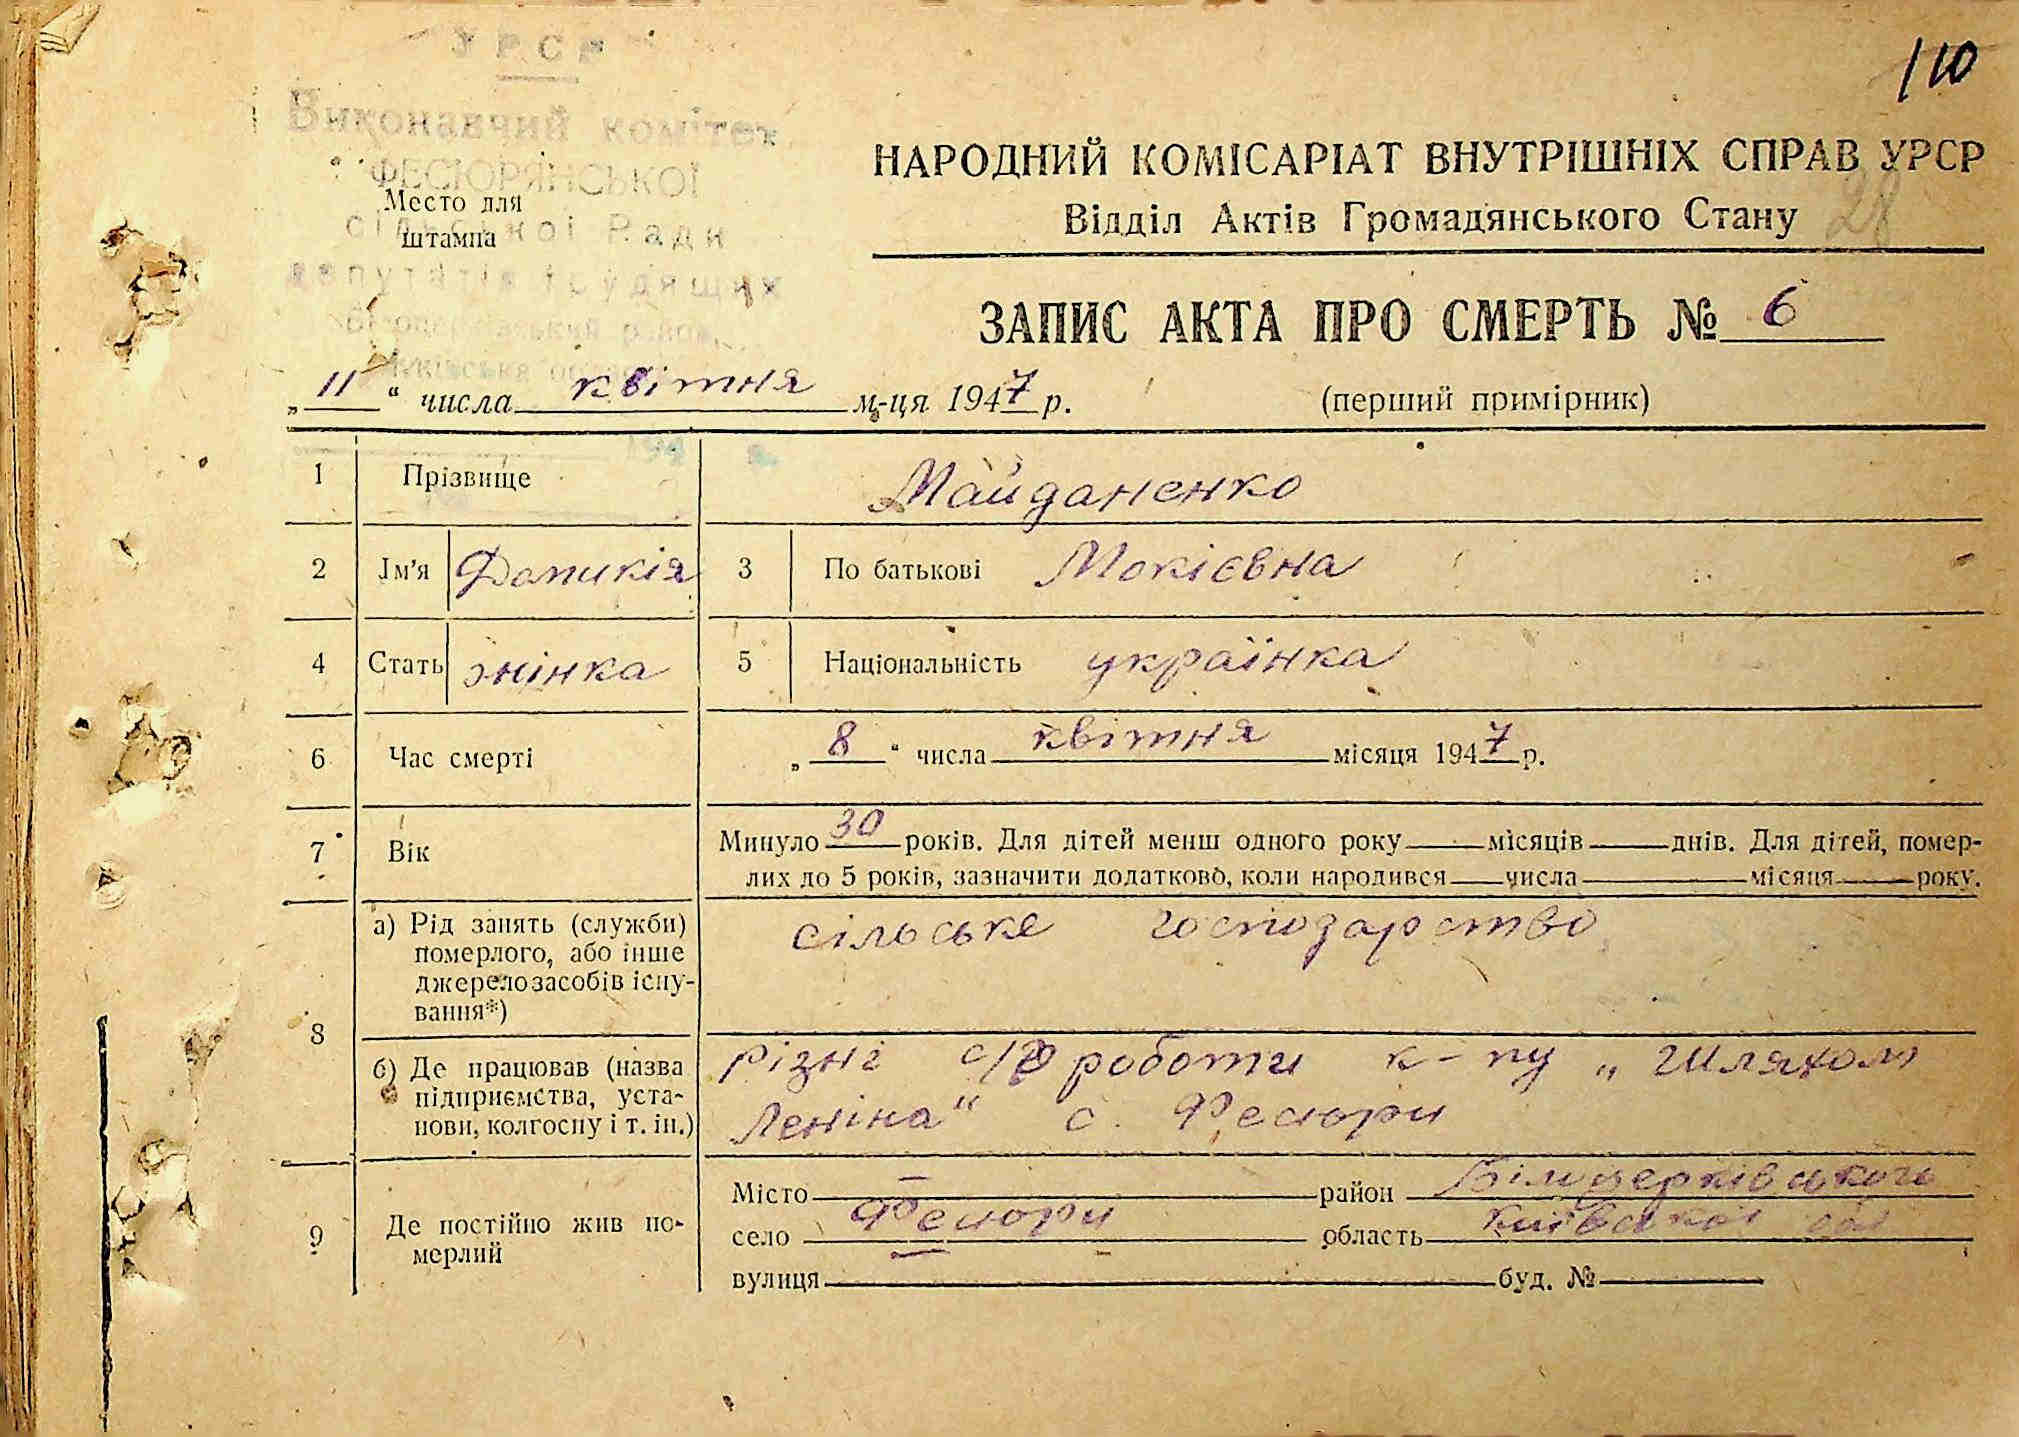 УРСР
110
Виконавчий комітет
ФЕСЮРЯНСЬКОЇ
Место для
сільської Ради
штампа
депутатів трудящих
НАРОДНИЙ КОМІСАРІАТ ВНУТРІШНІХ СПРАВ УРСР
Відділ Актів Громадянського Стану 28
ЗАПИС АКТА ПРО СМЕРТЬ № 6
„11“ числа квітня м-ця 1947 р. (перший примірник)
1 Прізвище Майданенко
2 Ім'я 3 По батькові Мокієвна
4 Стать жінка 5 Національність українка
6 Час смерті „8“ числа квітня місяця 1947 р.
7 Вік Минуло 30 років. Для дітей менш одного року місяців днів. Для дітей, помер-
лих до 5 років, зазначити додатково, коли народився числа місяця року.
8 а) Рід занять (служби) сільське господарство
померлого, або інше
джерело засобів існу-
вання*)
б) Де працював (назва різні с/г роботи к-пу „Шляхом
підприємства, уста- Леніна" с. Фесюри
нови, колгоспу і т. ін.)
9 Де постійно жив по-
мерлий
Місто — район Білоцерківського
село Фесюри область Київської обл
вулиця буд. №